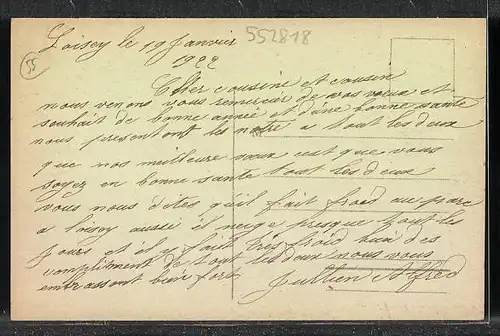 Loisey le 19 Janvier
1922
552818
55
Cher cousine et cousin
nous venons vous remircier de vos vœux et
souhait de bonne année et d'une bonne santé
nous présentont les notre a tout les deux
que nos meilleure vœux est que vous
soyez en bonne sante tout les deux
vous nous dites qu'il fait froid au parc
a loisey aussi il neige presque tout les
jours et il y fait tres froid bien des
compliment de tout les deux nous vous
embrassont bien fort Jullien Alfred